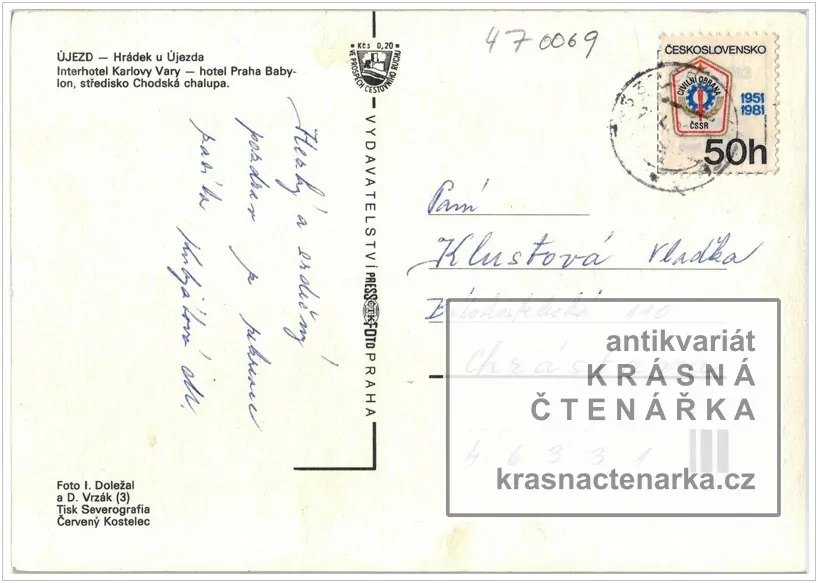 ÚJEZD — Hrádek u Újezda
Interhotel Karlovy Vary — hotel Praha Baby-
lon, středisko Chodská chalupa.
Kčs 0,20
VE PROSPĚCH CESTOVNÍHO RUCHU
470069
ČESKOSLOVENSKO
CIVILNÍ OBRANA
ČSSR
1951
1981
50h
Hezký a srdečný
pozdrav
VYDAVATELSTVÍ PRESSFOTO PRAHA
Paní
Klustová Vladka
110
Chrást
46331
antikvariát
KRÁSNÁ
ČTENÁŘKA
krasnactenarka.cz
Foto I. Doležal
a D. Vrzák (3)
Tisk Severografia
Červený Kostelec